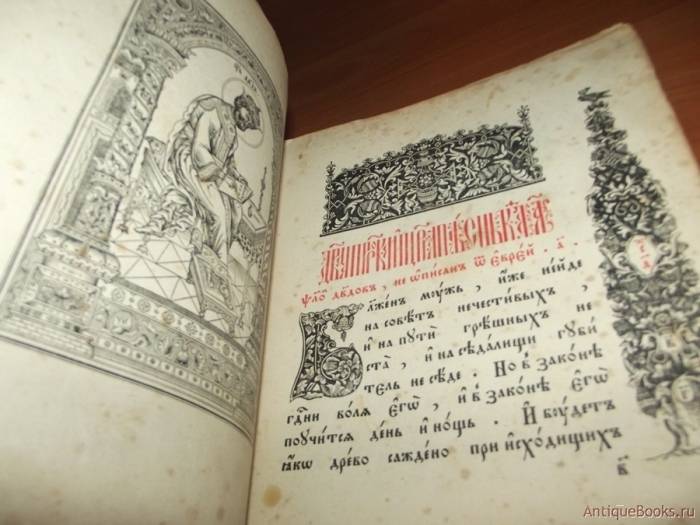 ѰАЛО́ дв҃довъ, не ѡ҆писан ѿ є҆врє́й. а҃.
Б лаженъ мꙋжъ, и҆же не и҆де
на совѣтъ нечестивыхъ,
и҆ на пꙋти грѣшныхъ не
ста̀, и҆ на сѣдалищи гꙋби
тель не сѣде. Но в законѣ
гд҃ни воля є҆гѡ̀, и҆ в законѣ є҆гѡ̀
поꙋчится день и҆ нощь. И҆ бꙋдетъ
ꙗ҆кѡ древо саждено при и҆сходищихъ
в
AntiqueBooks.ru